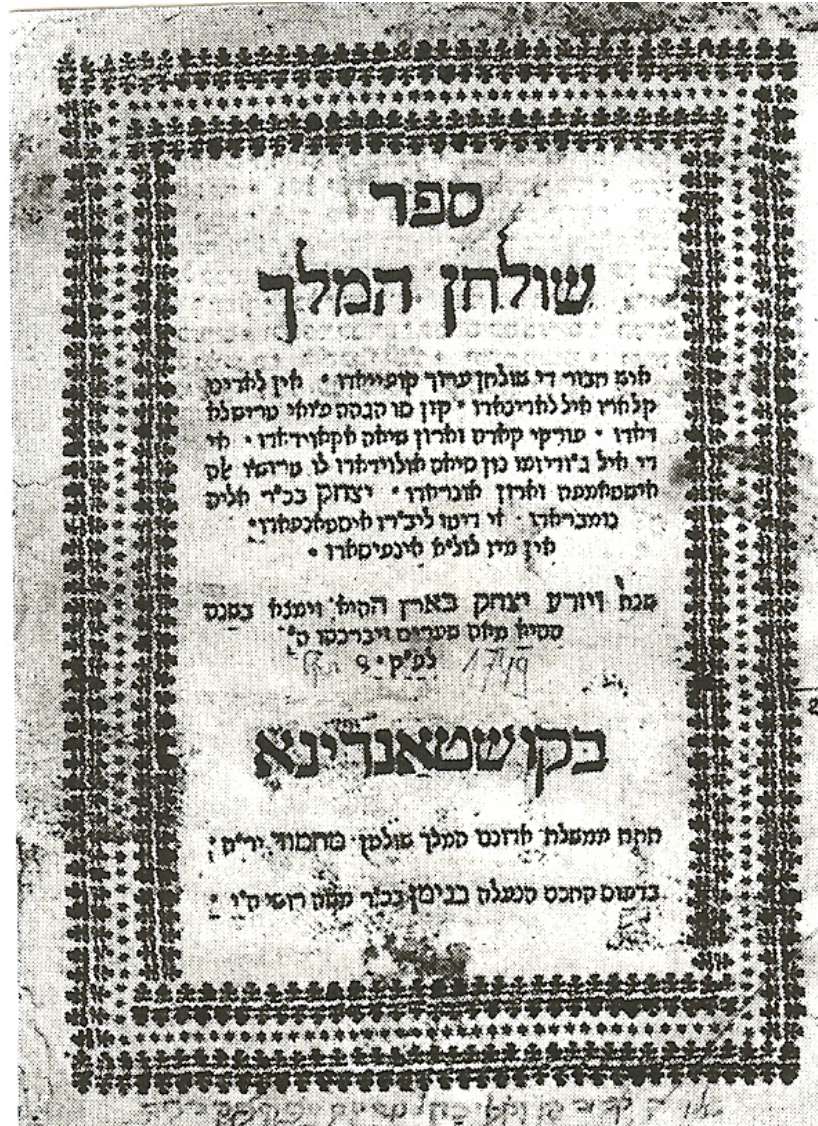 ספר
שולחן המלך
איש חבור די שולחן ערוך קופייאדו · אין לאדינו
קלארו איל לאדינאדו · קון סו הגהה
פורקי קאדה וארון סיאה אקאוידאדו · אי
די איל ג'ודיזמו נון סיאה אולוידאדו לו
איסטאמפה וארון אונראדו · יצחק בכ"ר אליה
נומבראדו · אי דיטו ליב'רו איסטאמפאדו ·
אין
שנת ויזרע יצחק בארץ ההיא וימצא בשנה
ההיא מאה שערים ויברכהו ה'
לפ"ק · 1749
בקושטאנדינא
תחת ממשלת אדונינו המלך שולטן מחמוד יר"ה :
בדפוס החכם הנעלה בנימן בכ"ר משה רוסי ה"י :